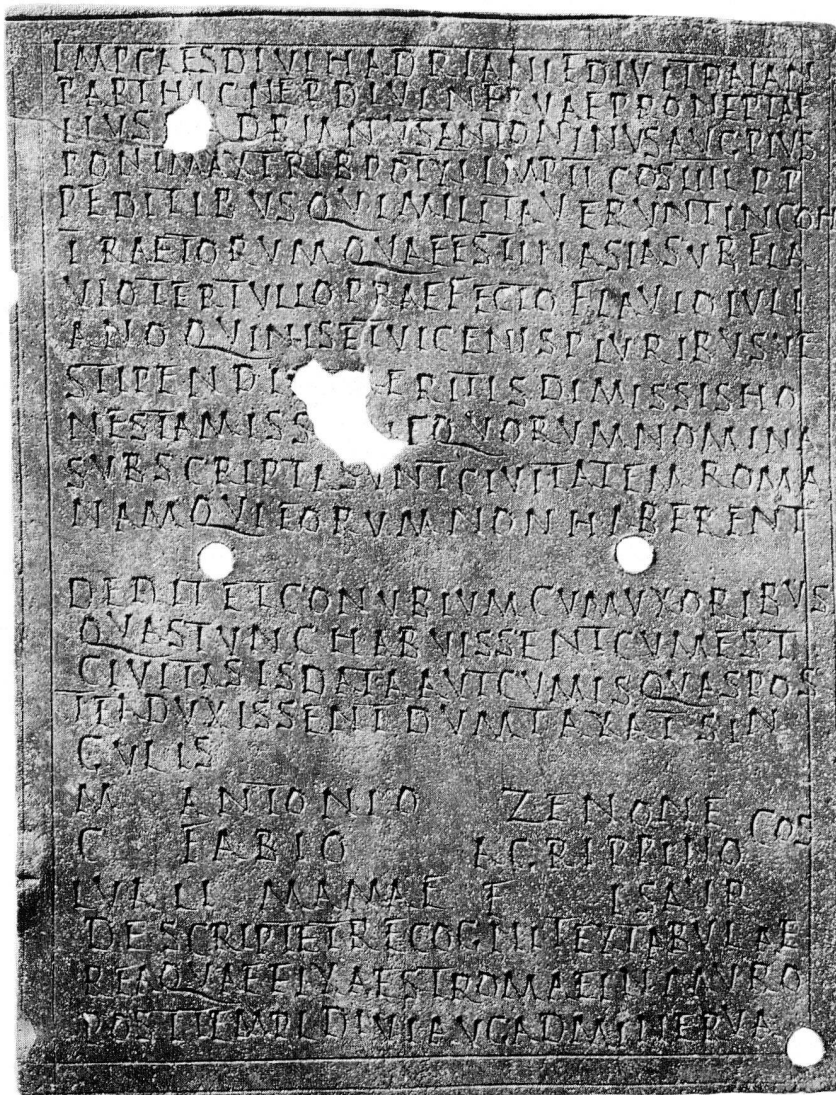 IMPCAESDIVIHADRIANIFDIVITRAIAN
PARTHICNEPDIVINERVAEPRONEPTAE
LIVS ADRIANVSANTONINVSAVGPIVS
PONTMAXTRIBPOTXIIMPIICOSIIIIPP
PEDITIBVSQVIMILITAVERVNTINCOH
IRAETORVMQVAEESTINASIASVBFLA
VIOTERTVLLOPRAEFECTOFLAVIOIVLI
ANOQVINISETVICENISPLVRIBVSVE
STIPENDI ERITISDIMISSISHO
NESTAMISS EQVORVMNOMINA
SVBSCRIPTASVNTCIVITATEMROMA
NAMQVIEORVMNONHABERENT
DEDITETCONVBIVMCVMVXORIBVS
QVASTVNCHABVISSENTCVMEST
CIVITASISDATAAVTCVMISQVASPOS
TEADVXISSENTDVMTAXATSIN
GVLIS
M ANTONIO ZENONE COS
C FABIO AGRIPPINO
MAMAE F ISAVR
DESCRIPTETRECOGNITEXTABVLAE
REAQVAEFIXAESTROMAEINMVRO
POSTTEMPLDIVIAVGADMINERVA